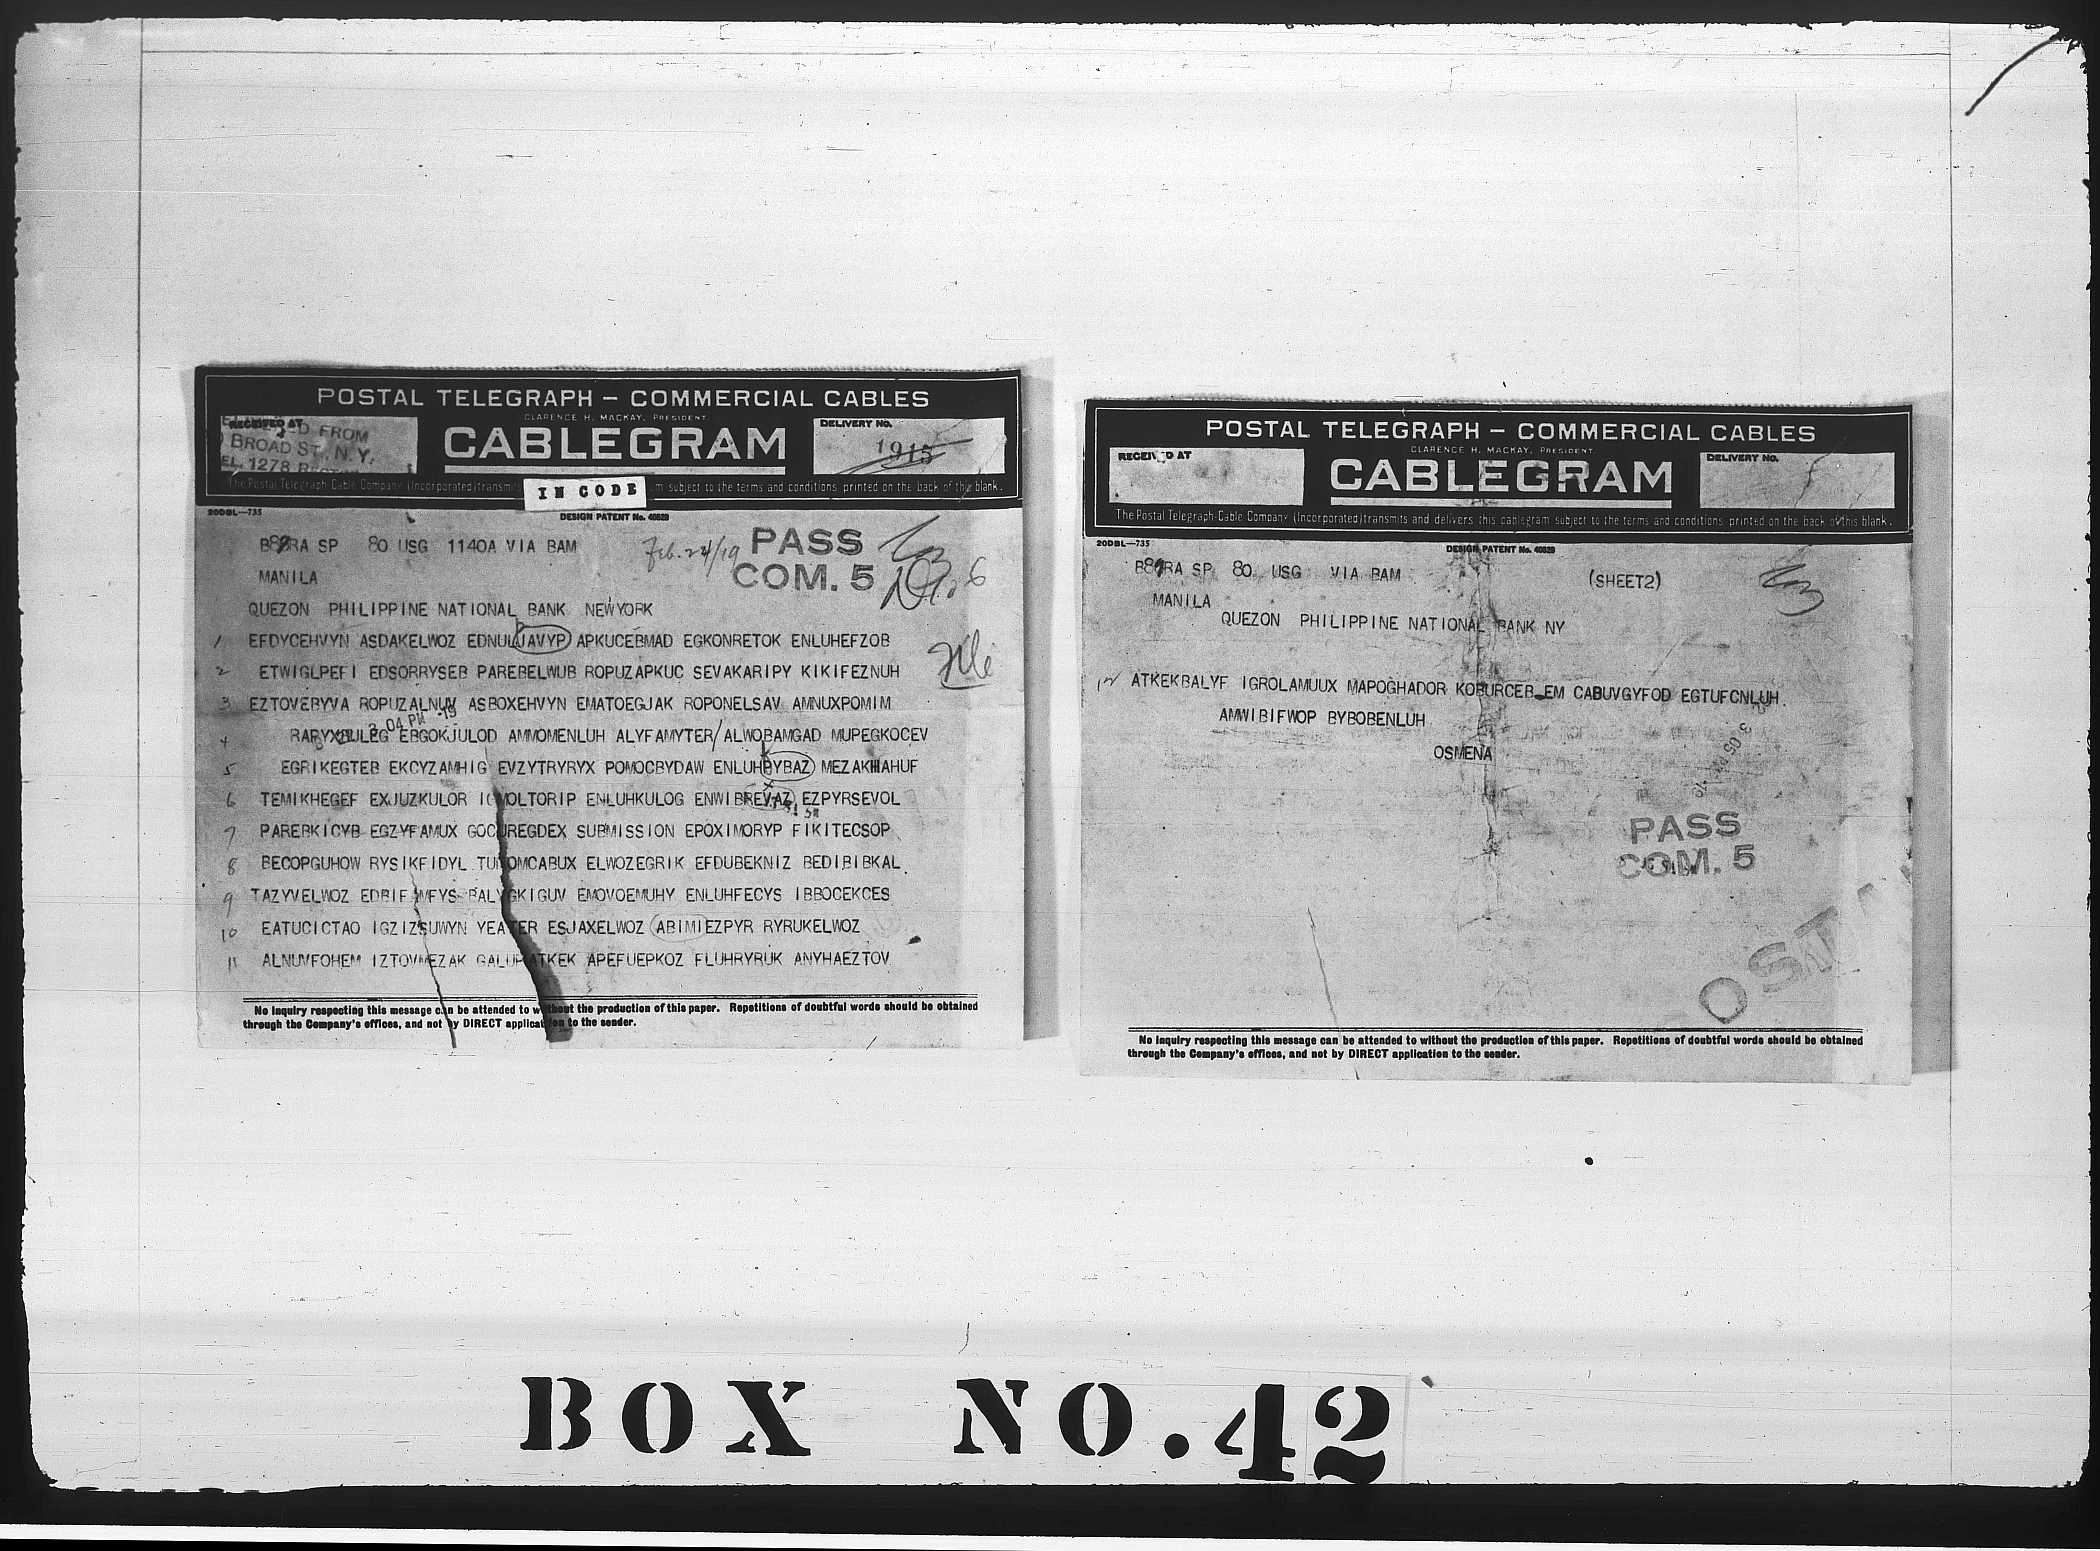 POSTAL TELEGRAPH – COMMERCIAL CABLES
CLARENCE H. MACKAY, PRESIDENT
RECEIVED AT
D FROM
BROAD ST., N.Y.
1278
CABLEGRAM
DELIVERY No.
1915
The Postal Telegraph-Cable Company (Incorporated) transmits IN CODE m subject to the terms and conditions printed on the back of this blank.
20DBL—735
DESIGN PATENT No. 40529
B89RA SP 80 USG 1140A VIA BAM
Feb. 24/19
PASS
COM. 5
MANILA
QUEZON PHILIPPINE NATIONAL BANK NEWYORK
1 EFDYCEHVYN ASDAKELWOZ EDNULUAVYP APKUCEBMAD EGKONRETOK ENLUHEFZOB
2 ETWIGLPEFI EDSORRYSEB PAREBELWUB ROPUZAPKUC SEVAKARIPY KIKIFEZNUH
3 EZTOVEBYVA ROPUZALNUV ASBOXEHVYN EMATOEGJAK ROPONELSAV AMNUXPOMIM
2 04 PM
4 EBGOKJULOD AMMOMENLUH ALYFAMYTER/ALWOBAMGAD MUPEGKOCEV
5 EGRIKEGTEB EKCYZAMHIG EVZYTRYRYX POMOCBYDAW ENLUHBYBAZ
6 TEMIKHEGEF EXJUZKULOR ENLUHKULOG ENWIBREVAZ EZPYRSEVOL
7 PAREBKICYB EGZYFAMUX GOCUREGDEX SUBMISSION EPOXIMORYP FIKITECSOP
8 BECOPGUHOW RYSIKFIDYL ELWOZEGRIK EFDUBEKNIZ BEDIBIBKAL
9 TAZYVELWOZ EMOVOEMUHY ENLUHFECYS IBBOCEKCES
10 EATUCICTAO ESJAXELWOZ ABIMIEZPYR RYRUKELWOZ
11 ALNUVFOHEM APEFUEPKOZ FLUHRYRUK ANYHAEZTOV
No inquiry respecting this message can be attended to without the production of this paper. Repetitions of doubtful words should be obtained
through the Company's offices, and not by DIRECT application to the sender.
POSTAL TELEGRAPH – COMMERCIAL CABLES
CLARENCE H. MACKAY, PRESIDENT.
RECEIVED AT
CABLEGRAM
DELIVERY No.
The Postal Telegraph-Cable Company (Incorporated) transmits and delivers this cablegram subject to the terms and conditions printed on the back of this blank.
20DBL—735
DESIGN PATENT No. 40529
B89RA SP 80 USG VIA BAM
(SHEET2)
MANILA
QUEZON PHILIPPINE NATIONAL BANK NY
12 ATKEKBALYF IGROLAMUUX MAPOGHADOR KOBURCEB EM CABUVGYFOD EGTUFCNLUH
AMWIBIFWOP BYBOBENLUH
OSMENA
PASS
COM. 5
No inquiry respecting this message can be attended to without the production of this paper. Repetitions of doubtful words should be obtained
through the Company's offices, and not by DIRECT application to the sender.
BOX NO. 42